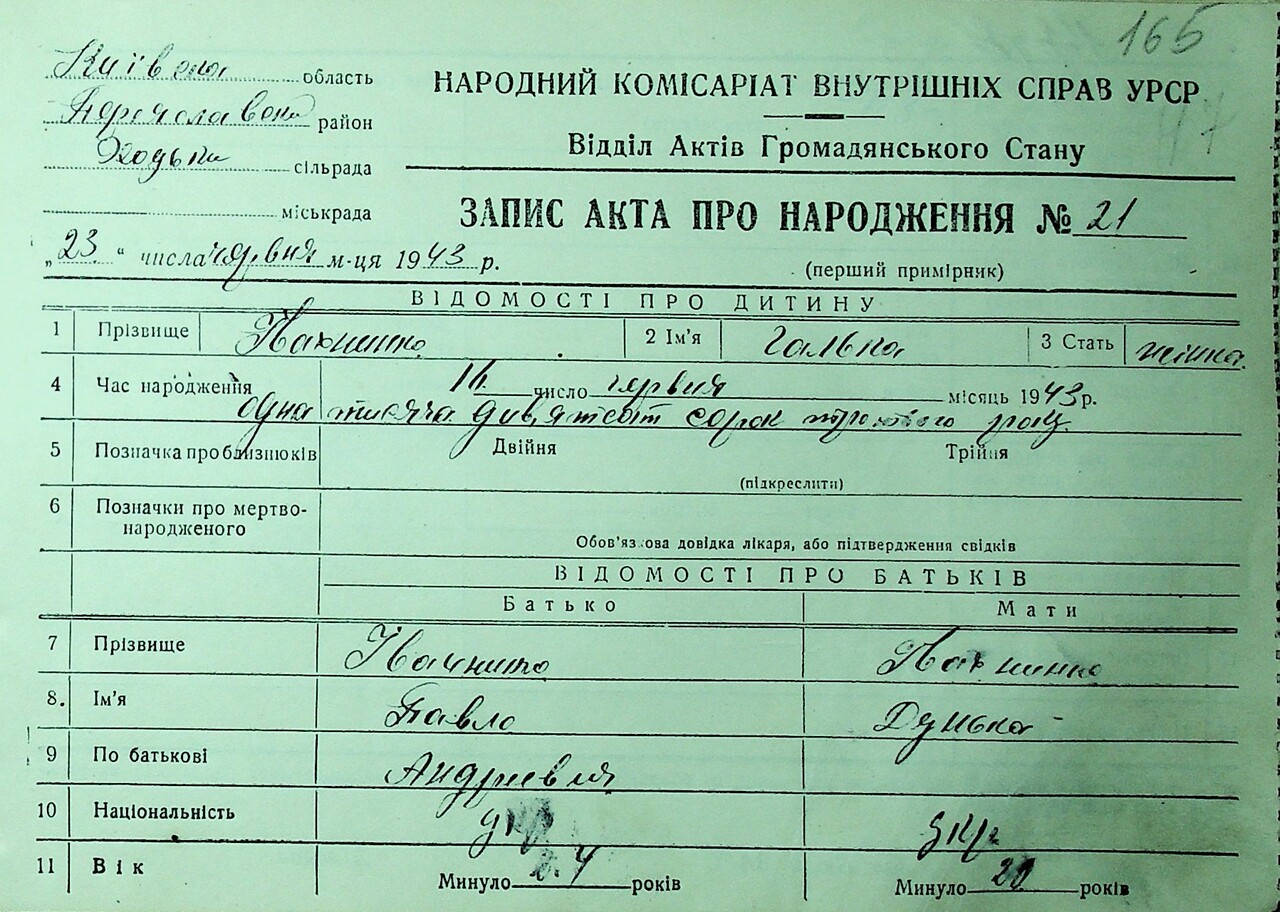 165
Київська область
Переяславськ район
Ходьки сільрада
міськрада
НАРОДНИЙ КОМІСАРІАТ ВНУТРІШНІХ СПРАВ УРСР
47
Відділ Актів Громадянського Стану
ЗАПИС АКТА ПРО НАРОДЖЕННЯ № 21
„23“ числа червня м-ця 1943 р.
(перший примірник)
ВІДОМОСТІ ПРО ДИТИНУ
1 Прізвище 2 Ім'я Галька 3 Стать жінка
4 Час народження число червня місяць 1943 р.
одна тисяча девятсот сорок третього року
5 Позначка про близнюків Двійня Трійня
(підкреслити)
6 Позначки про мертво-
народженого
Обов'язкова довідка лікаря, або підтвердження свідків
ВІДОМОСТІ ПРО БАТЬКІВ
Батько Мати
7 Прізвище
8. Ім'я Павло Дунька
9 По батькові Андриевич
10 Національність укр укр
11 Вік Минуло 24 років Минуло 20 років